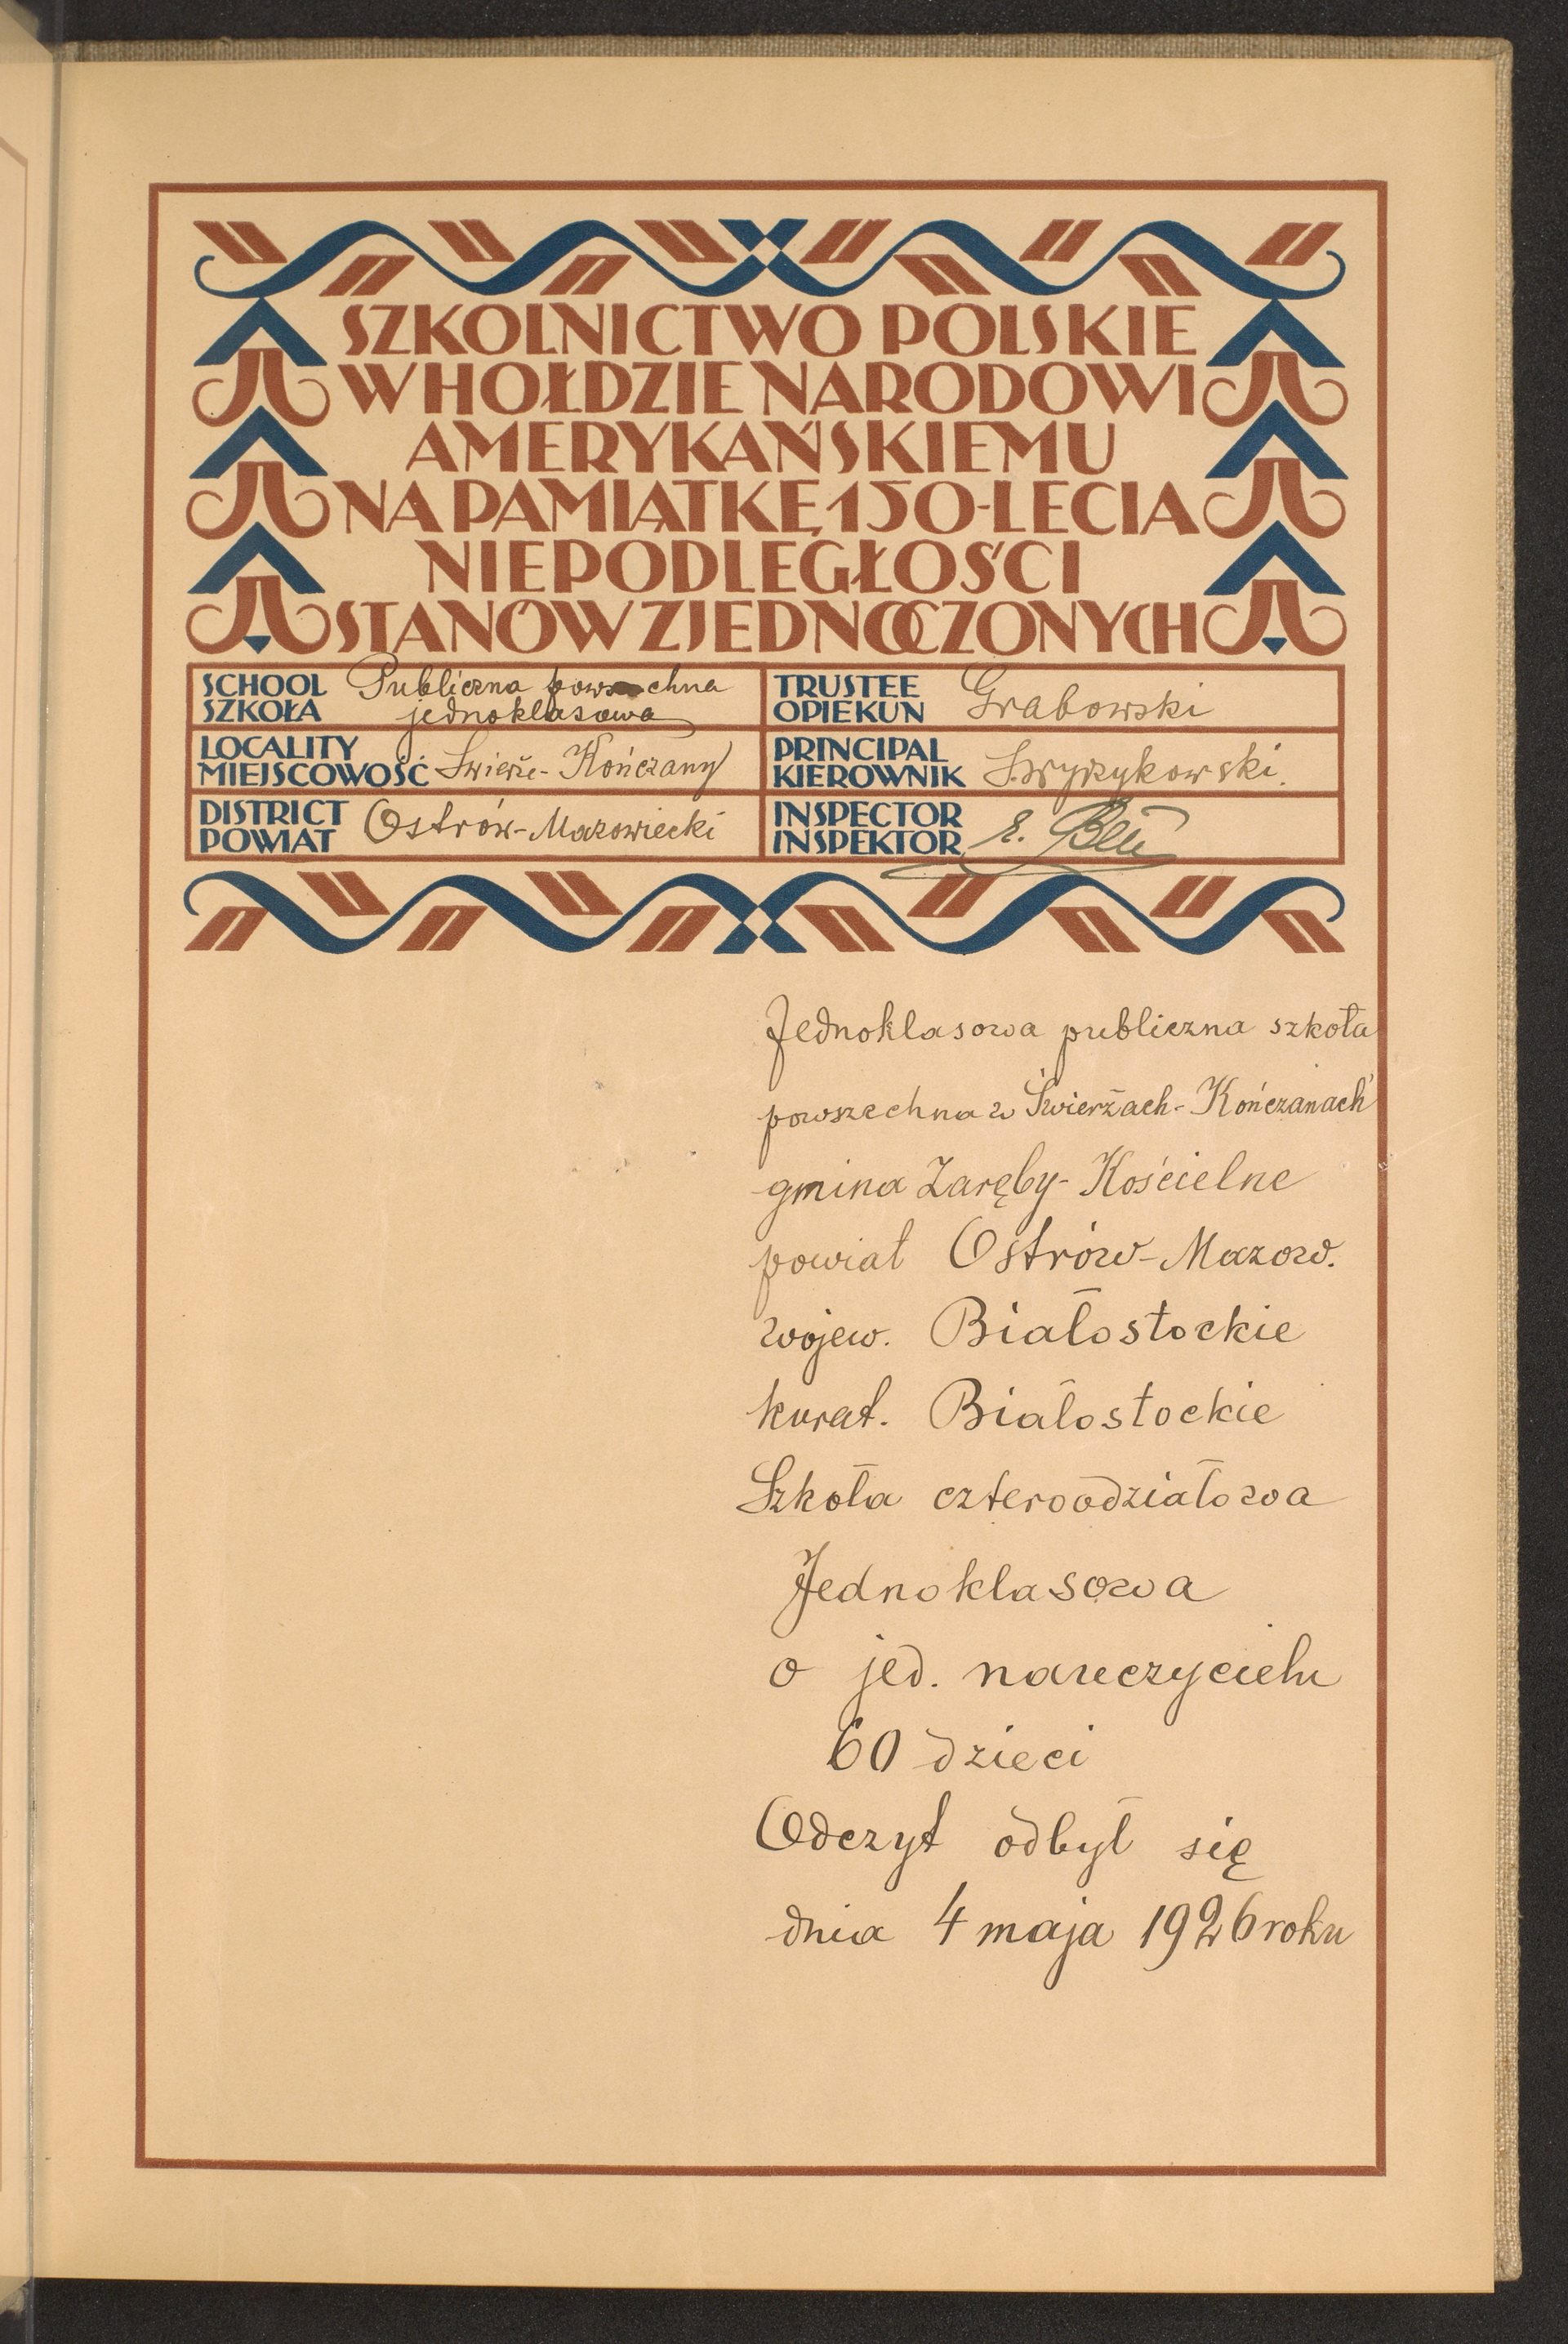 SZKOLNICTWO POLSKIE
W HOŁDZIE NARODOWI
AMERYKAŃSKIEMU
NA PAMIĄTKĘ 150-LECIA
NIEPODLEGŁOŚCI
STANÓW ZJEDNOCZONYCH
SCHOOL
SZKOŁA
Publiczna powszechna
jednoklasowa
TRUSTEE
OPIEKUN
Grabowski
LOCALITY
MIEJSCOWOŚĆ
Świerże-Kończany
PRINCIPAL
KIEROWNIK
DISTRICT
POWIAT
Ostrów-Mazowiecki
INSPECTOR
INSPEKTOR
Jednoklasowa publiczna szkoła
powszechna w Świerżach-Kończanach
gmina Zaręby-Kościelne
powiat Ostrów-Mazow.
wojew. Białostockie
kurat. Białostockie
Szkoła czterooddziałowa
Jednoklasowa
o jed. nauczycielu
60 dzieci
Odczyt odbył się
dnia 4 maja 1926 roku